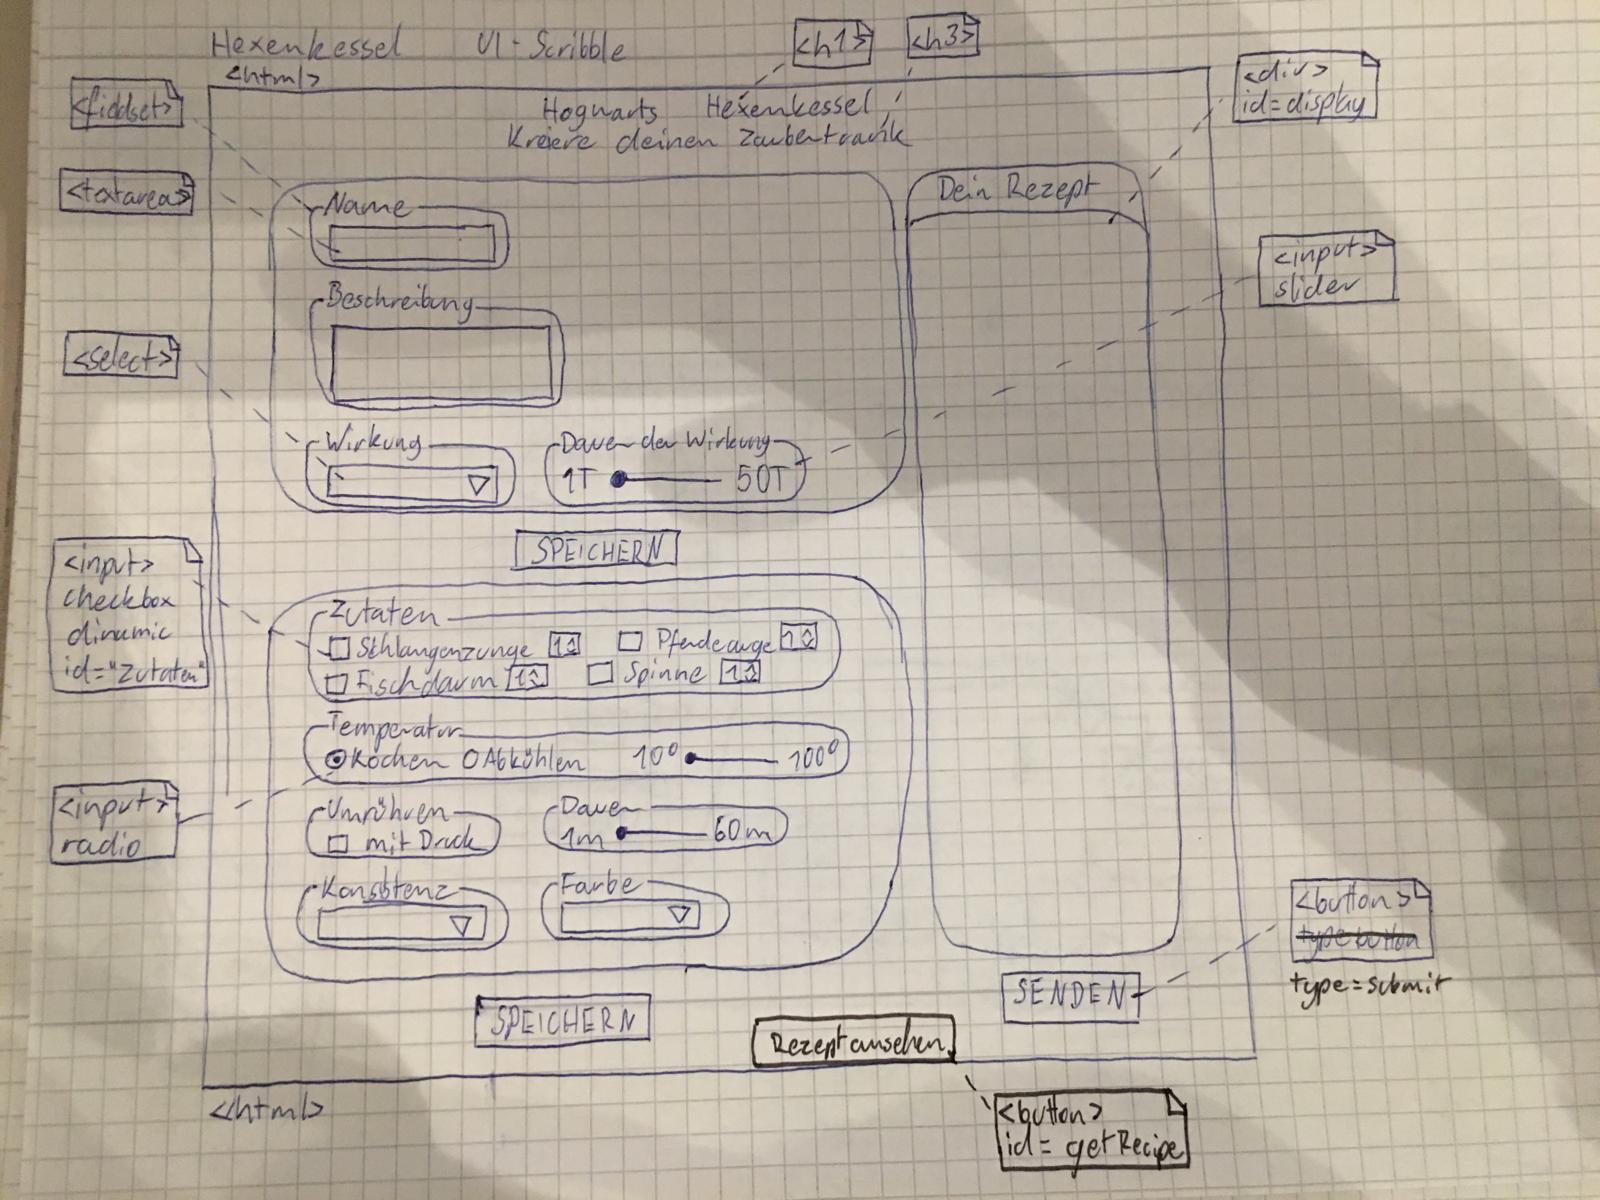 Hexenkessel UI-Scribble
<h1>
<h3>
<html>
<fieldset>
<div>
id=display
Hogwarts Hexenkessel
Kreiere deinen Zaubertrank
<textarea>
Name
Dein Rezept
<input>
slider
Beschreibung
<select>
Wirkung
Dauer der Wirkung
1T 50T
SPEICHERN
<input>
checkbox
dinamic
id="Zutaten"
Zutaten
Schlangenzunge 1 Pferdeauge 1
Fischdarm 1 Spinne 1
Temperatur
Kochen Abkühlen 10° 100°
<input>
radio
Umrühren
mit Druck
Dauer
1m 60m
Konsistenz
Farbe
<button>
type button
type=submit
SENDEN
SPEICHERN
Rezept ansehen
</html>
<button>
id= getRecipe